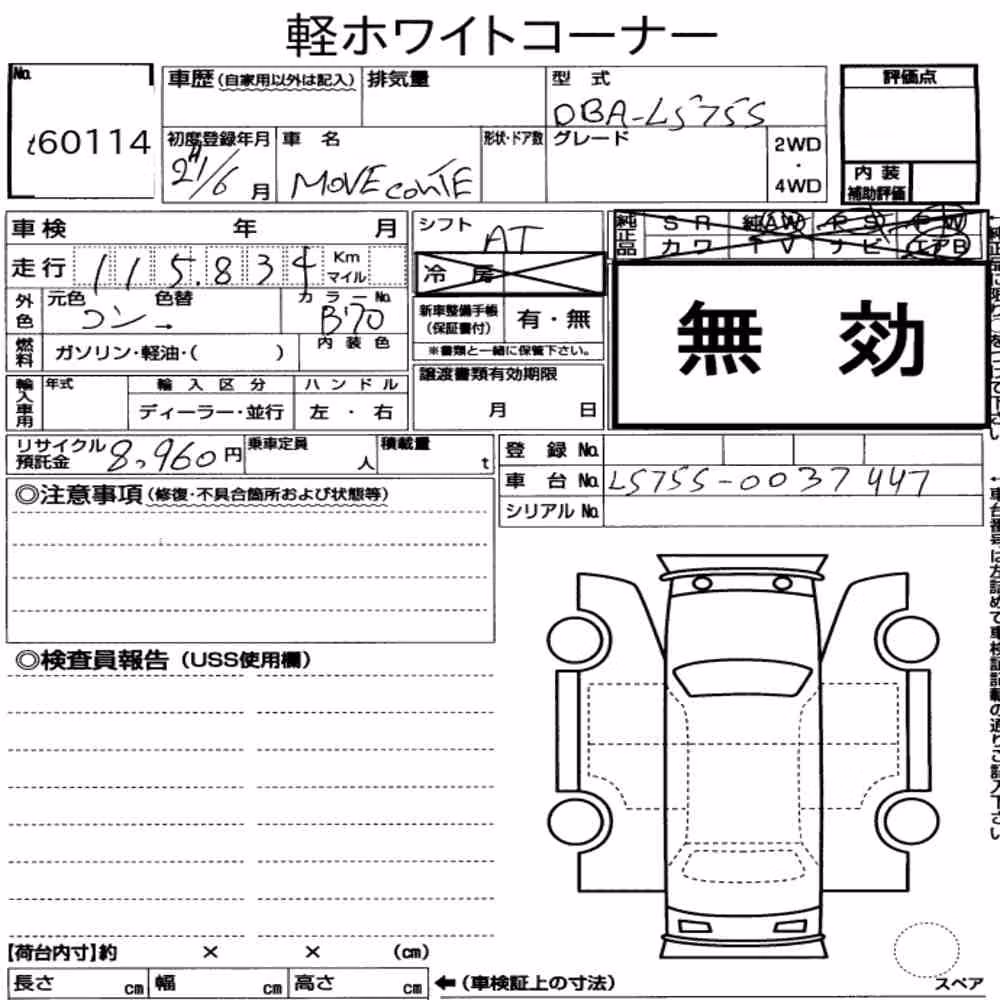 軽ホワイトコーナー
No. t60114
車歴(自家用以外は記入) 排気量 型式 DBA-L575S 評価点
初度登録年月 21/6月 車名 MOVE CONTE 形状・ドア数 グレード 2WD・4WD 内装補助評価
車検 年 月 シフト AT 純正品 SR 純AW PS PW
カワ TV ナビ エアB
走行 115.834 Km マイル 冷房
外色 元色 コン 色替 カラーNo. B70 新車整備手帳(保証書付) 有・無
※書類と一緒に保管下さい。
無効
燃料 ガソリン・軽油・( ) 内装色
輸入車用 年式 輸入区分 ハンドル 譲渡書類有効期限
ディーラー・並行 左・右 月 日
リサイクル預託金 8,960円 乗車定員 人 積載量 t 登録No.
車台No. L575S-0037447
シリアルNo.
◎注意事項(修復・不具合箇所および状態等)
◎検査員報告(USS使用欄)
【荷台内寸】約 × × (cm)
長さ cm 幅 cm 高さ cm ←(車検証上の寸法)
スペア
←車台番号は左詰めで車検証記載の通りご記入下さい